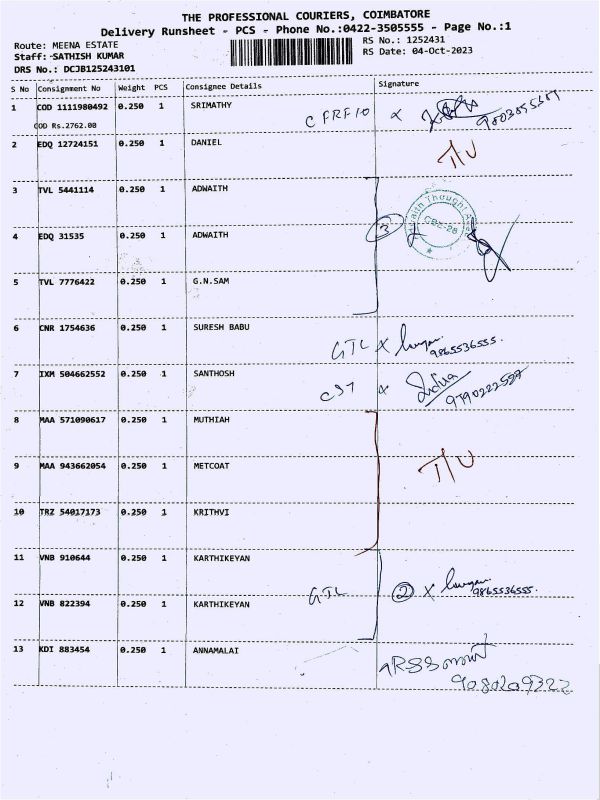 THE PROFESSIONAL COURIERS, COIMBATORE
Delivery Runsheet - PCS - Phone No.:0422-3505555 - Page No.:1
Route: MEENA ESTATE
RS No.: 1252431
Staff: SATHISH KUMAR
RS Date: 04-Oct-2023
DRS No.: DCJB125243101
S No Consignment No Weight PCS Consignee Details Signature
1 COD 1111980492 0.250 1 SRIMATHY
COD Rs.2762.00
2 EDQ 12724151 0.250 1 DANIEL T/U
3 TVL 5441114 0.250 1 ADWAITH
4 EDQ 31535 0.250 1 ADWAITH 3
5 TVL 7776422 0.250 1 G.N.SAM
6 CNR 1754636 0.250 1 SURESH BABU
GTL x 9865536555.
7 IXM 504662552 0.250 1 SANTHOSH
x
8 MAA 571090617 0.250 1 MUTHIAH
9 MAA 943662054 0.250 1 METCOAT T/U
10 TRZ 54017173 0.250 1 KRITHVI
11 VNB 910644 0.250 1 KARTHIKEYAN
GTL 2 x 9865536555.
12 VNB 822394 0.250 1 KARTHIKEYAN
13 KDI 883454 0.250 1 ANNAMALAI
9080209322